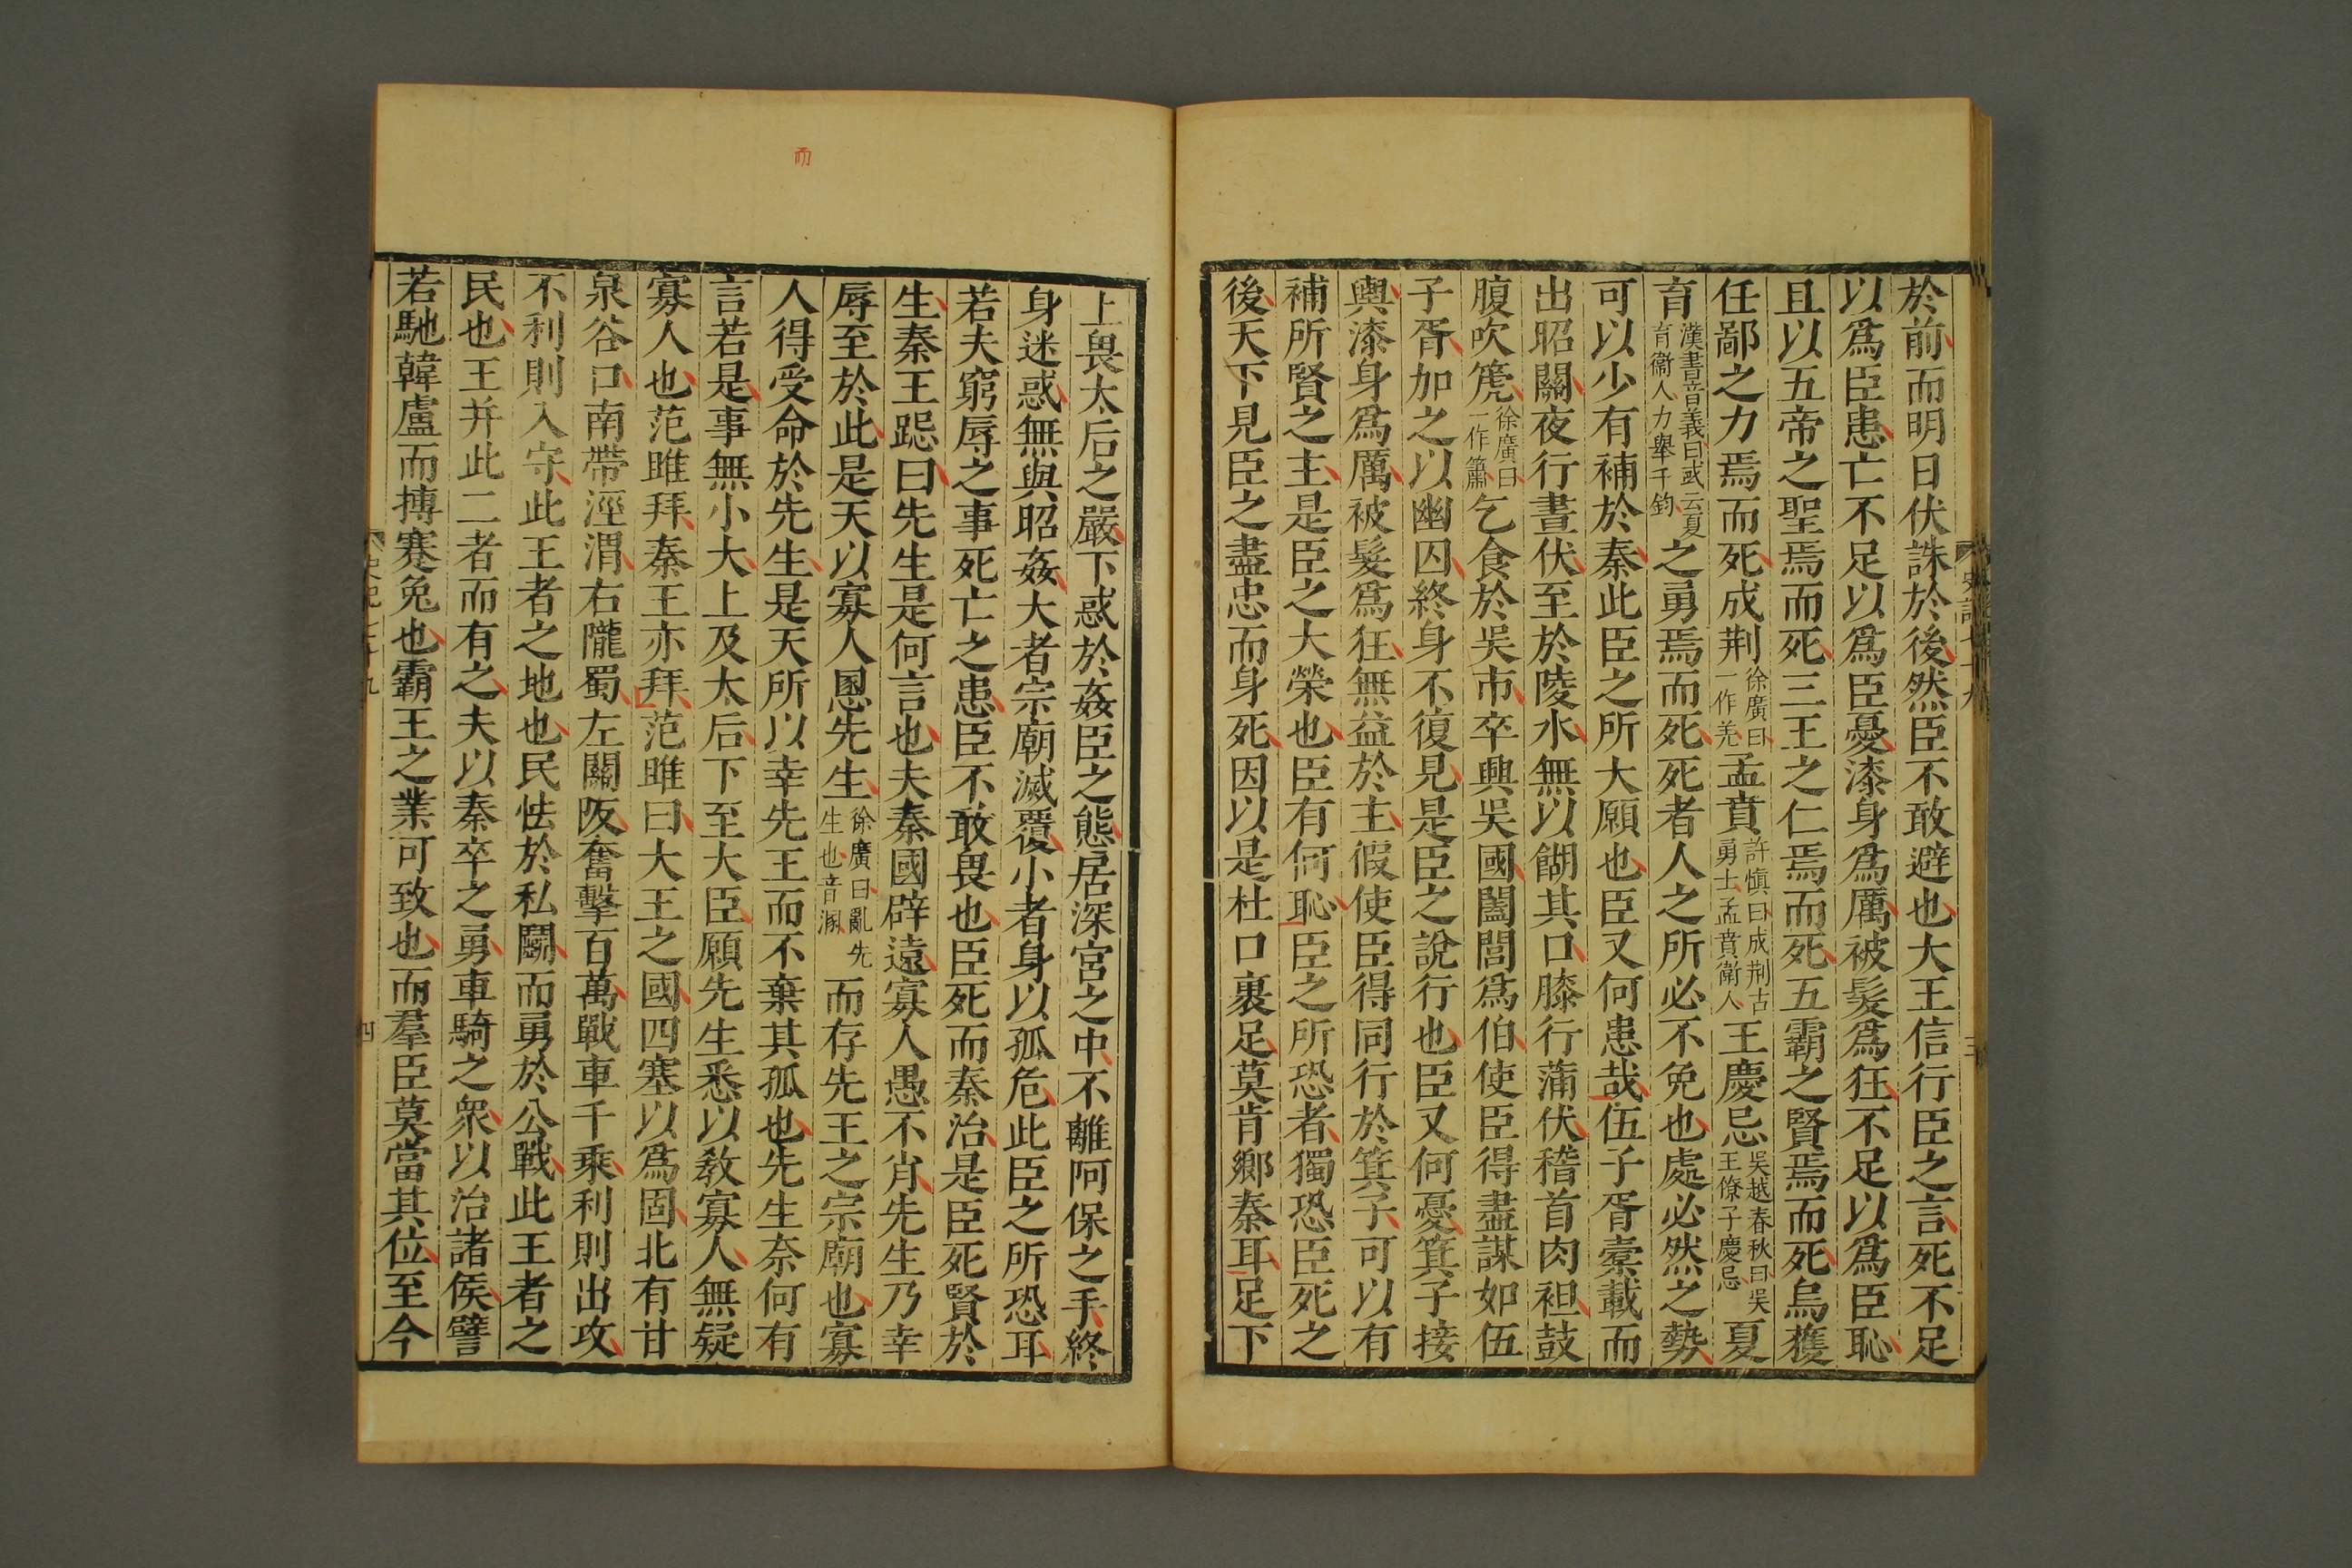 於前而明日伏誅於後然臣不敢避也大王信行臣之言死不足
以爲臣患亡不足以爲臣憂漆身爲厲被髮爲狂不足以爲臣恥
且以五帝之聖焉而死三王之仁焉而死五霸之賢焉而死烏獲
任鄙之力焉而死成荆徐廣曰一作羌孟賁許慎曰成荆古勇士孟賁衛人王慶忌吳越春秋曰吳王僚子慶忌夏
育漢書音義曰或云夏育衛人力舉千鈞之勇焉而死死者人之所必不免也處必然之勢
可以少有補於秦此臣之所大願也臣又何患哉伍子胥橐載而
出昭關夜行晝伏至於陵水無以餬其口膝行蒲伏稽首肉袒鼓
腹吹箎徐廣曰一作簫乞食於吳市卒興吳國闔閭爲伯使臣得盡謀如伍
子胥加之以幽囚終身不復見是臣之說行也臣又何憂箕子接
輿漆身爲厲被髮爲狂無益於主假使臣得同行於箕子可以有
補所賢之主是臣之大榮也臣有何恥臣之所恐者獨恐臣死之
後天下見臣之盡忠而身死因以是杜口裹足莫肯鄉秦耳足下
史記七十九
三
上畏太后之嚴下惑於姦臣之態居深宮之中不離阿保之手終
身迷惑無與昭姦大者宗廟滅覆小者身以孤危此臣之所恐耳
若夫窮辱之事死亡之患臣不敢畏也臣死而秦治是臣死賢於
生秦王跽曰先生是何言也夫秦國辟遠寡人愚不肖先生乃幸
辱至於此是天以寡人慁先生徐廣曰亂先生也音溷而存先王之宗廟也寡
人得受命於先生是天所以幸先王而不棄其孤也先生奈何有
言若是事無小大上及太后下至大臣願先生悉以教寡人無疑
寡人也范雎拜秦王亦拜范雎曰大王之國四塞以爲固北有甘
泉谷口南帶涇渭右隴蜀左關阪奮擊百萬戰車千乘利則出攻
不利則入守此王者之地也民怯於私鬬而勇於公戰此王者之
民也王并此二者而有之夫以秦卒之勇車騎之衆以治諸侯譬
若馳韓盧而搏蹇兔也霸王之業可致也而羣臣莫當其位至今
史記七十九
四
而